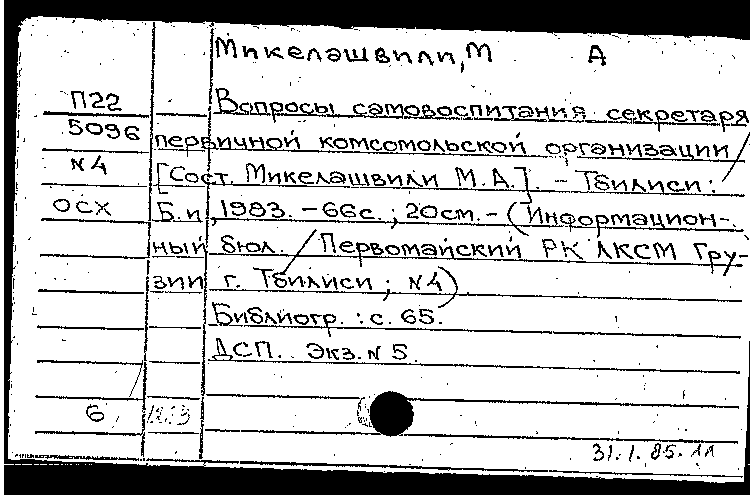 Микелашвили, М А
П22 Вопросы самовоспитания секретаря
5096 первичной комсомольской организации /
N4 [Сост. Микелашвили М.А.]. – Тбилиси:
ОСХ Б.и, 1983. – 66с.; 20см. – (Информацион-
ный бюл. / Первомайский РК ЛКСМ Гру-
зии г. Тбилиси; N4)
Библиогр.: с. 65.
ДСП. Экз. N 5.
6
31.1.85.